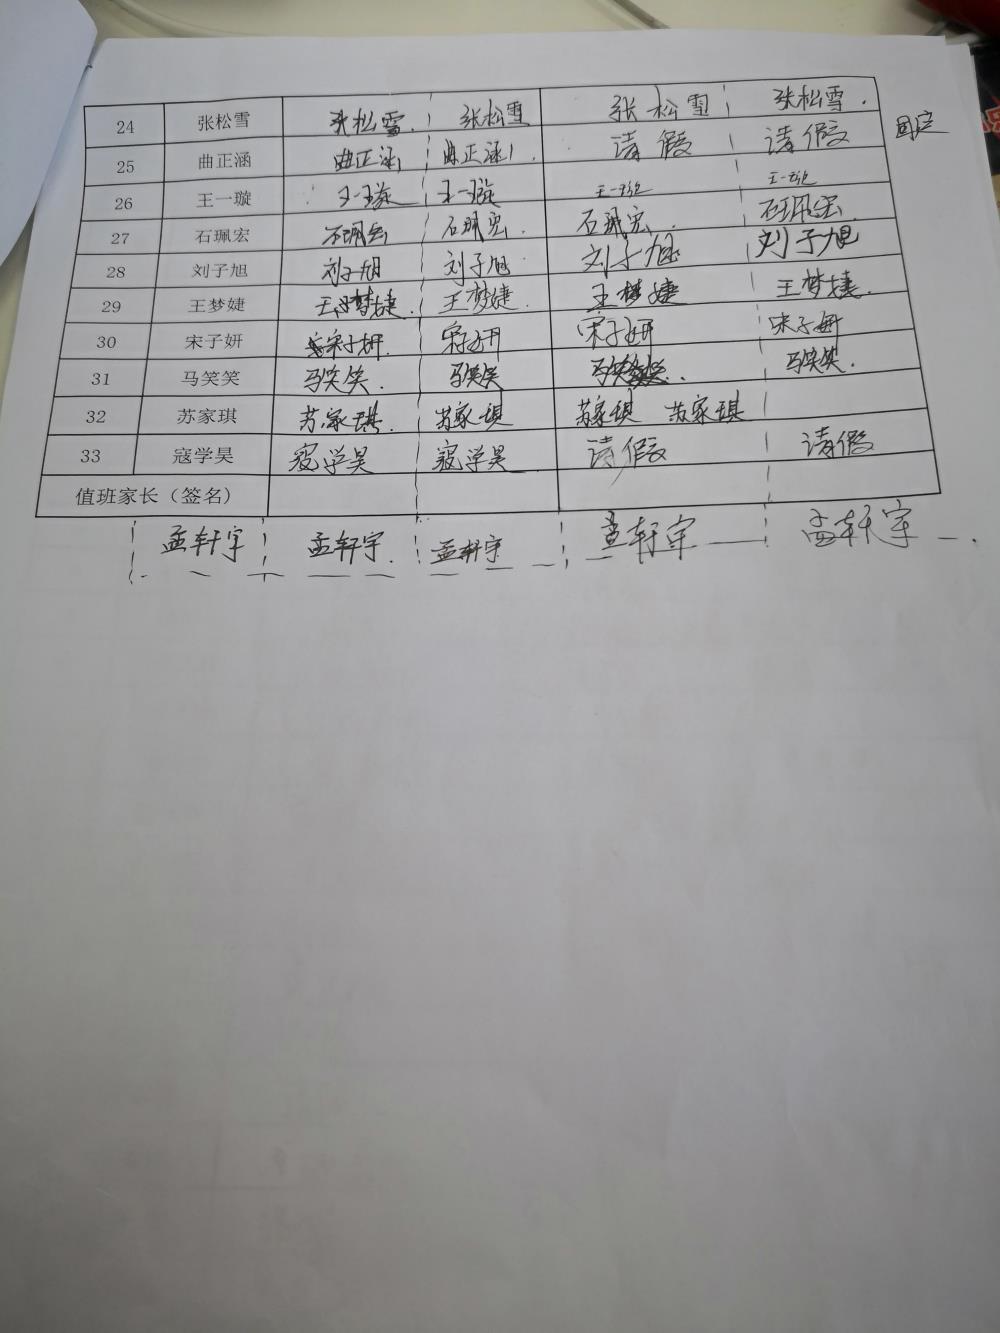 24 张松雪 张松雪. 张松雪 张松雪 张松雪.
25 曲正涵 曲正涵 曲正涵. 请假 请假 固定
26 王一璇 王一璇 王一璇 王一璇 王一璇
27 石珮宏 石珮宏 石珮宏. 石珮宏. 石珮宏.
28 刘子旭 刘子旭 刘子旭 刘子旭 刘子旭
29 王梦婕 王梦婕. 王梦婕. 王梦婕 王梦婕.
30 宋子妍 宋子妍. 宋子妍 宋子妍 宋子妍
31 马笑笑 马笑笑. 马笑笑 马笑 马笑笑.
32 苏家琪 苏家琪. 苏家琪 苏家琪 苏家琪
33 寇学昊 寇学昊 寇学昊. 请假 请假
值班家长（签名）
孟轩宇 孟轩宇. 孟轩宇 孟轩宇 孟轩宇